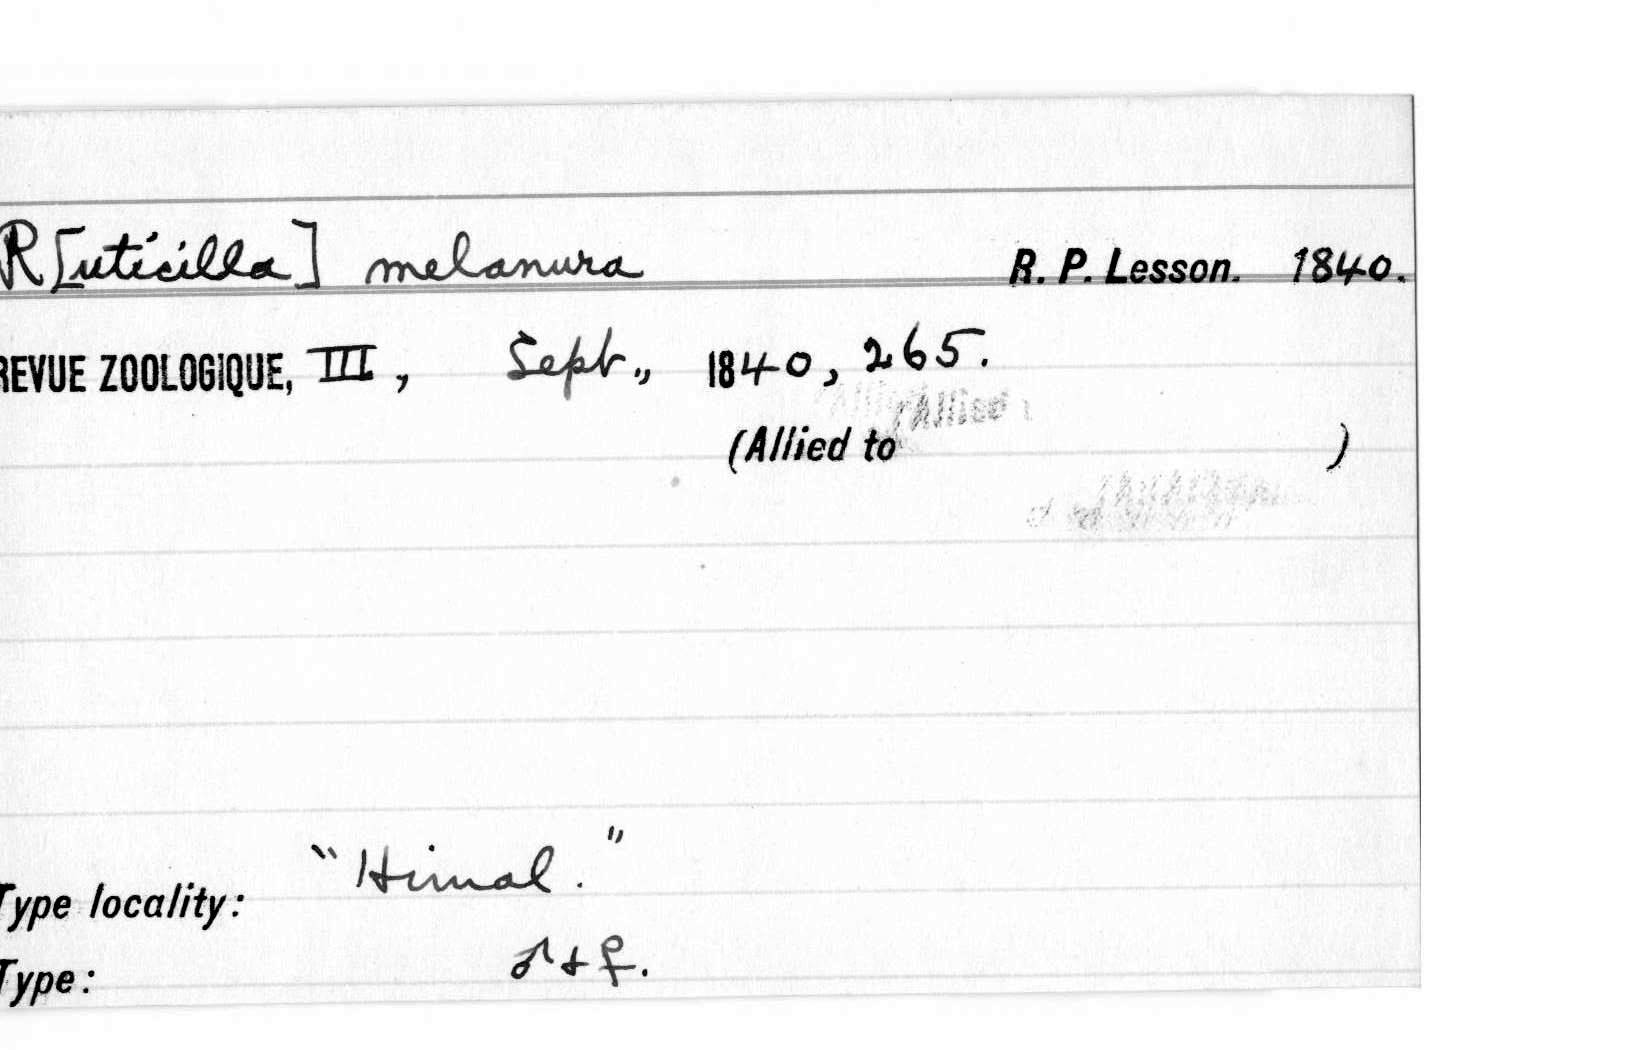 R[uticilla] melanura R. P. Lesson. 1840.
REVUE ZOOLOGIQUE, III, Sept., 1840, 265.
(Allied to )
Type locality: "Himal."
Type: ♂ + ♀.